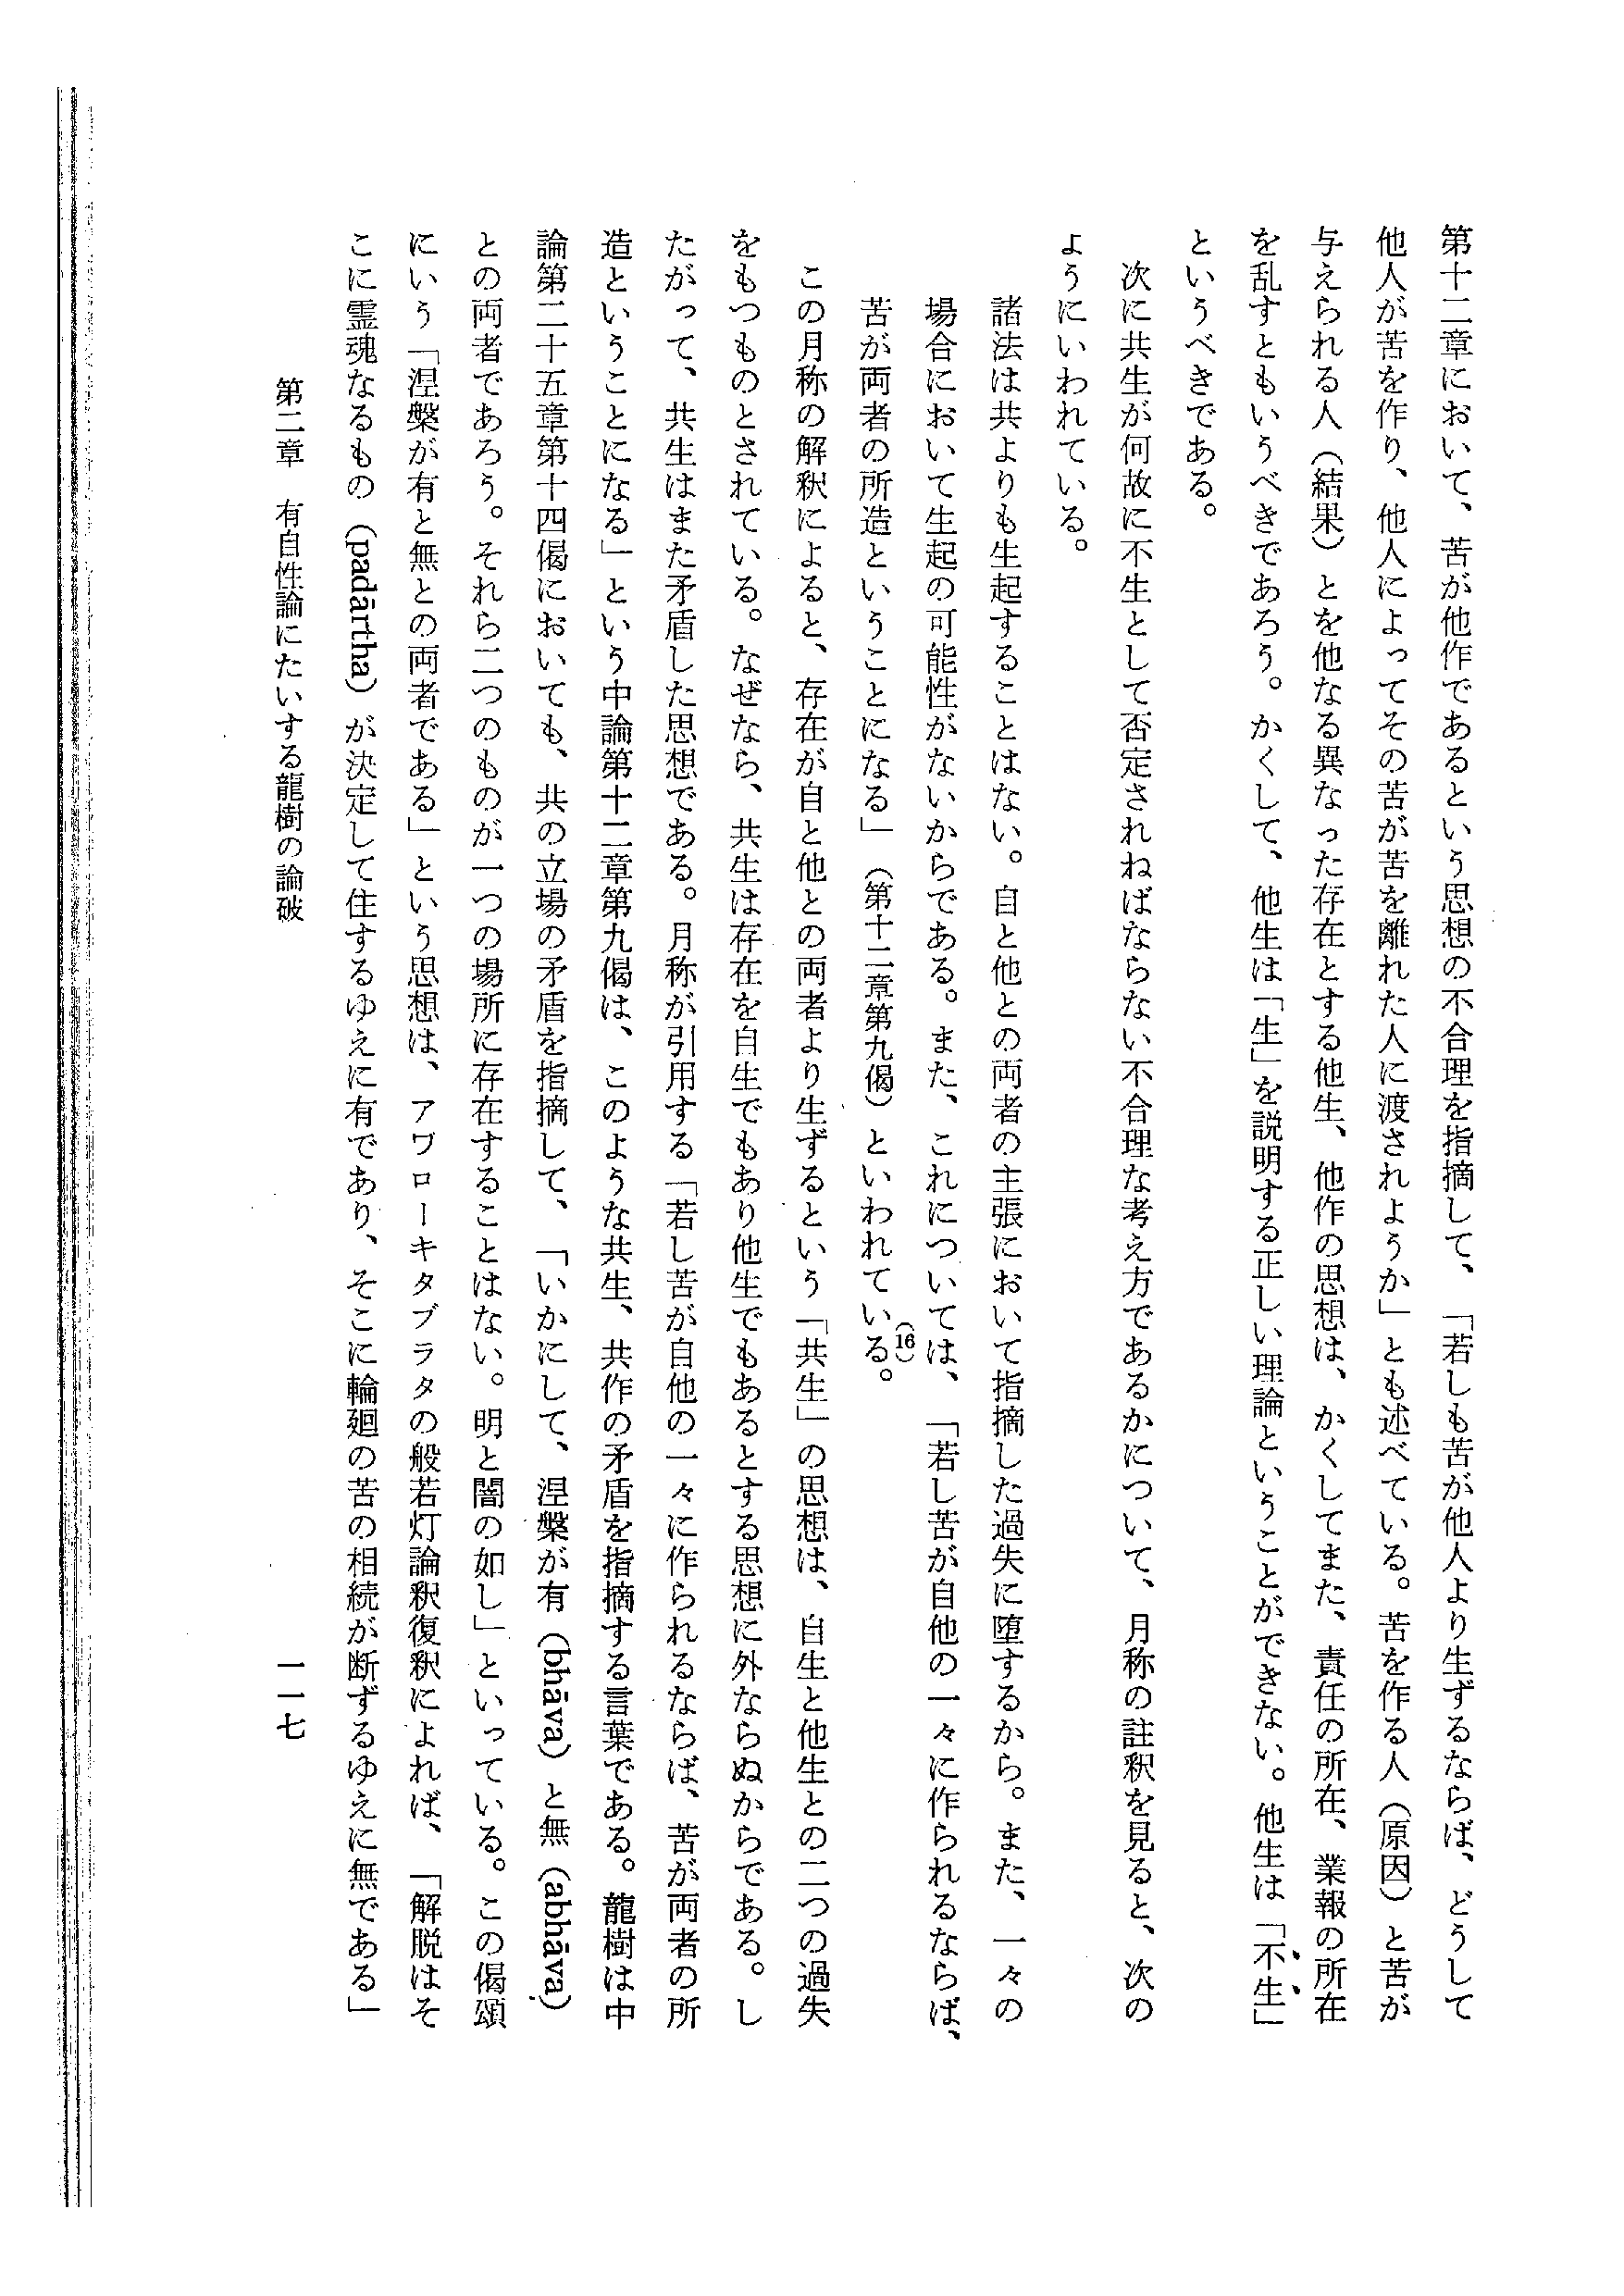 第十二章において、苦が他作であるという思想の不合理を指摘して、「若しも苦が他人より生ずるならば、どうして
他人が苦を作り、他人によってその苦が苦を離れた人に渡されようか」とも述べている。苦を作る人（原因）と苦が
与えられる人（結果）とを他なる異なった存在とする他生、他作の思想は、かくしてまた、責任の所在、業報の所在
を乱すともいうべきであろう。かくして、他生は「生」を説明する正しい理論ということができない。他生は「不生」
というべきである。
次に共生が何故に不生として否定されねばならない不合理な考え方であるかについて、月称の註釈を見ると、次の
ようにいわれている。
諸法は共よりも生起することはない。自と他との両者の主張において指摘した過失に堕するから。また、一々の
場合において生起の可能性がないからである。また、これについては、「若し苦が自他の一々に作られるならば、
苦が両者の所造ということになる」（第十二章第九偈）といわれている。(16)
この月称の解釈によると、存在が自と他との両者より生ずるという「共生」の思想は、自生と他生との二つの過失
をもつものとされている。なぜなら、共生は存在を自生でもあり他生でもあるとする思想に外ならぬからである。し
たがって、共生はまた矛盾した思想である。月称が引用する「若し苦が自他の一々に作られるならば、苦が両者の所
造ということになる」という中論第十二章第九偈は、このような共生、共作の矛盾を指摘する言葉である。龍樹は中
論第二十五章第十四偈においても、共の立場の矛盾を指摘して、「いかにして、涅槃が有（bhāva）と無（abhāva）
との両者であろう。それら二つのものが一つの場所に存在することはない。明と闇の如し」といっている。この偈頌
にいう「涅槃が有と無との両者である」という思想は、アヷローキタブラタの般若灯論釈復釈によれば、「解脱はそ
こに霊魂なるもの（padārtha）が決定して住するゆえに有であり、そこに輪廻の苦の相続が断ずるゆえに無である」
第二章　有自性論にたいする龍樹の論破
一一七